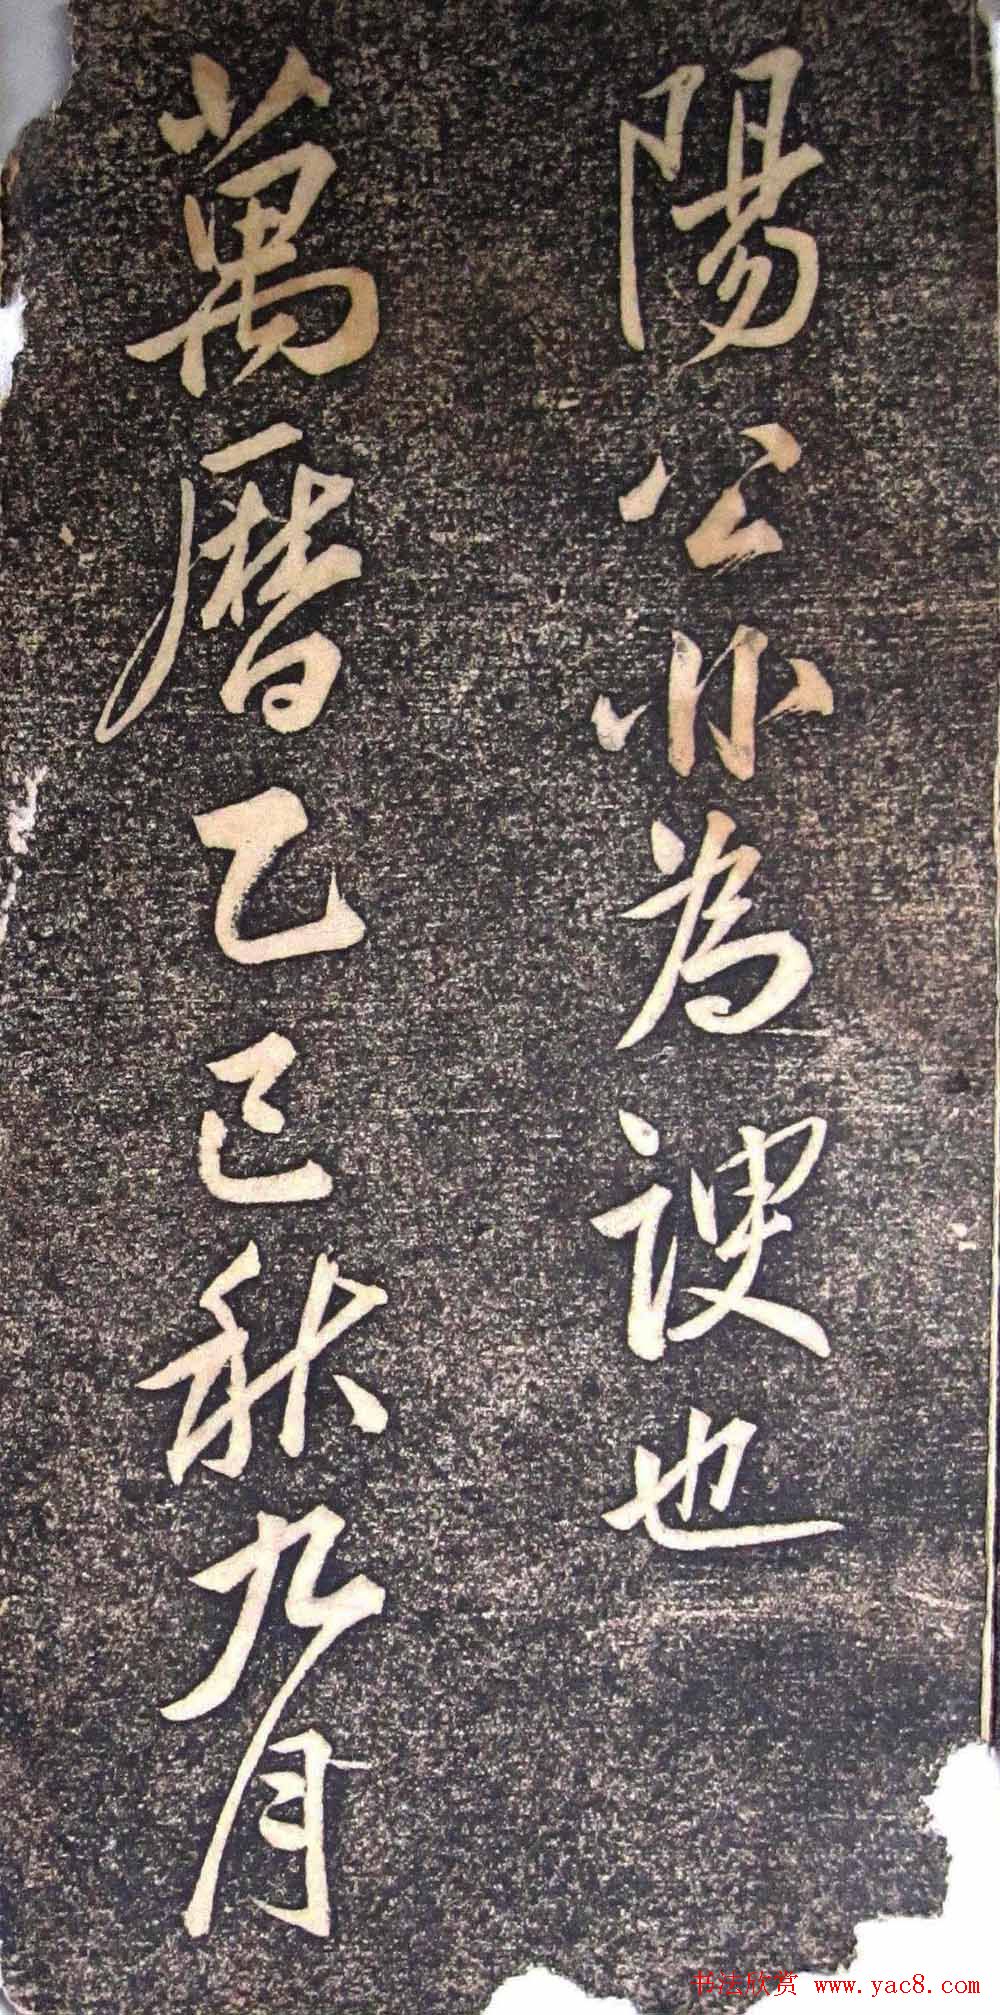 陽公亦為謏也
萬曆乙巳秋九月
书法欣赏 www.yac8.com